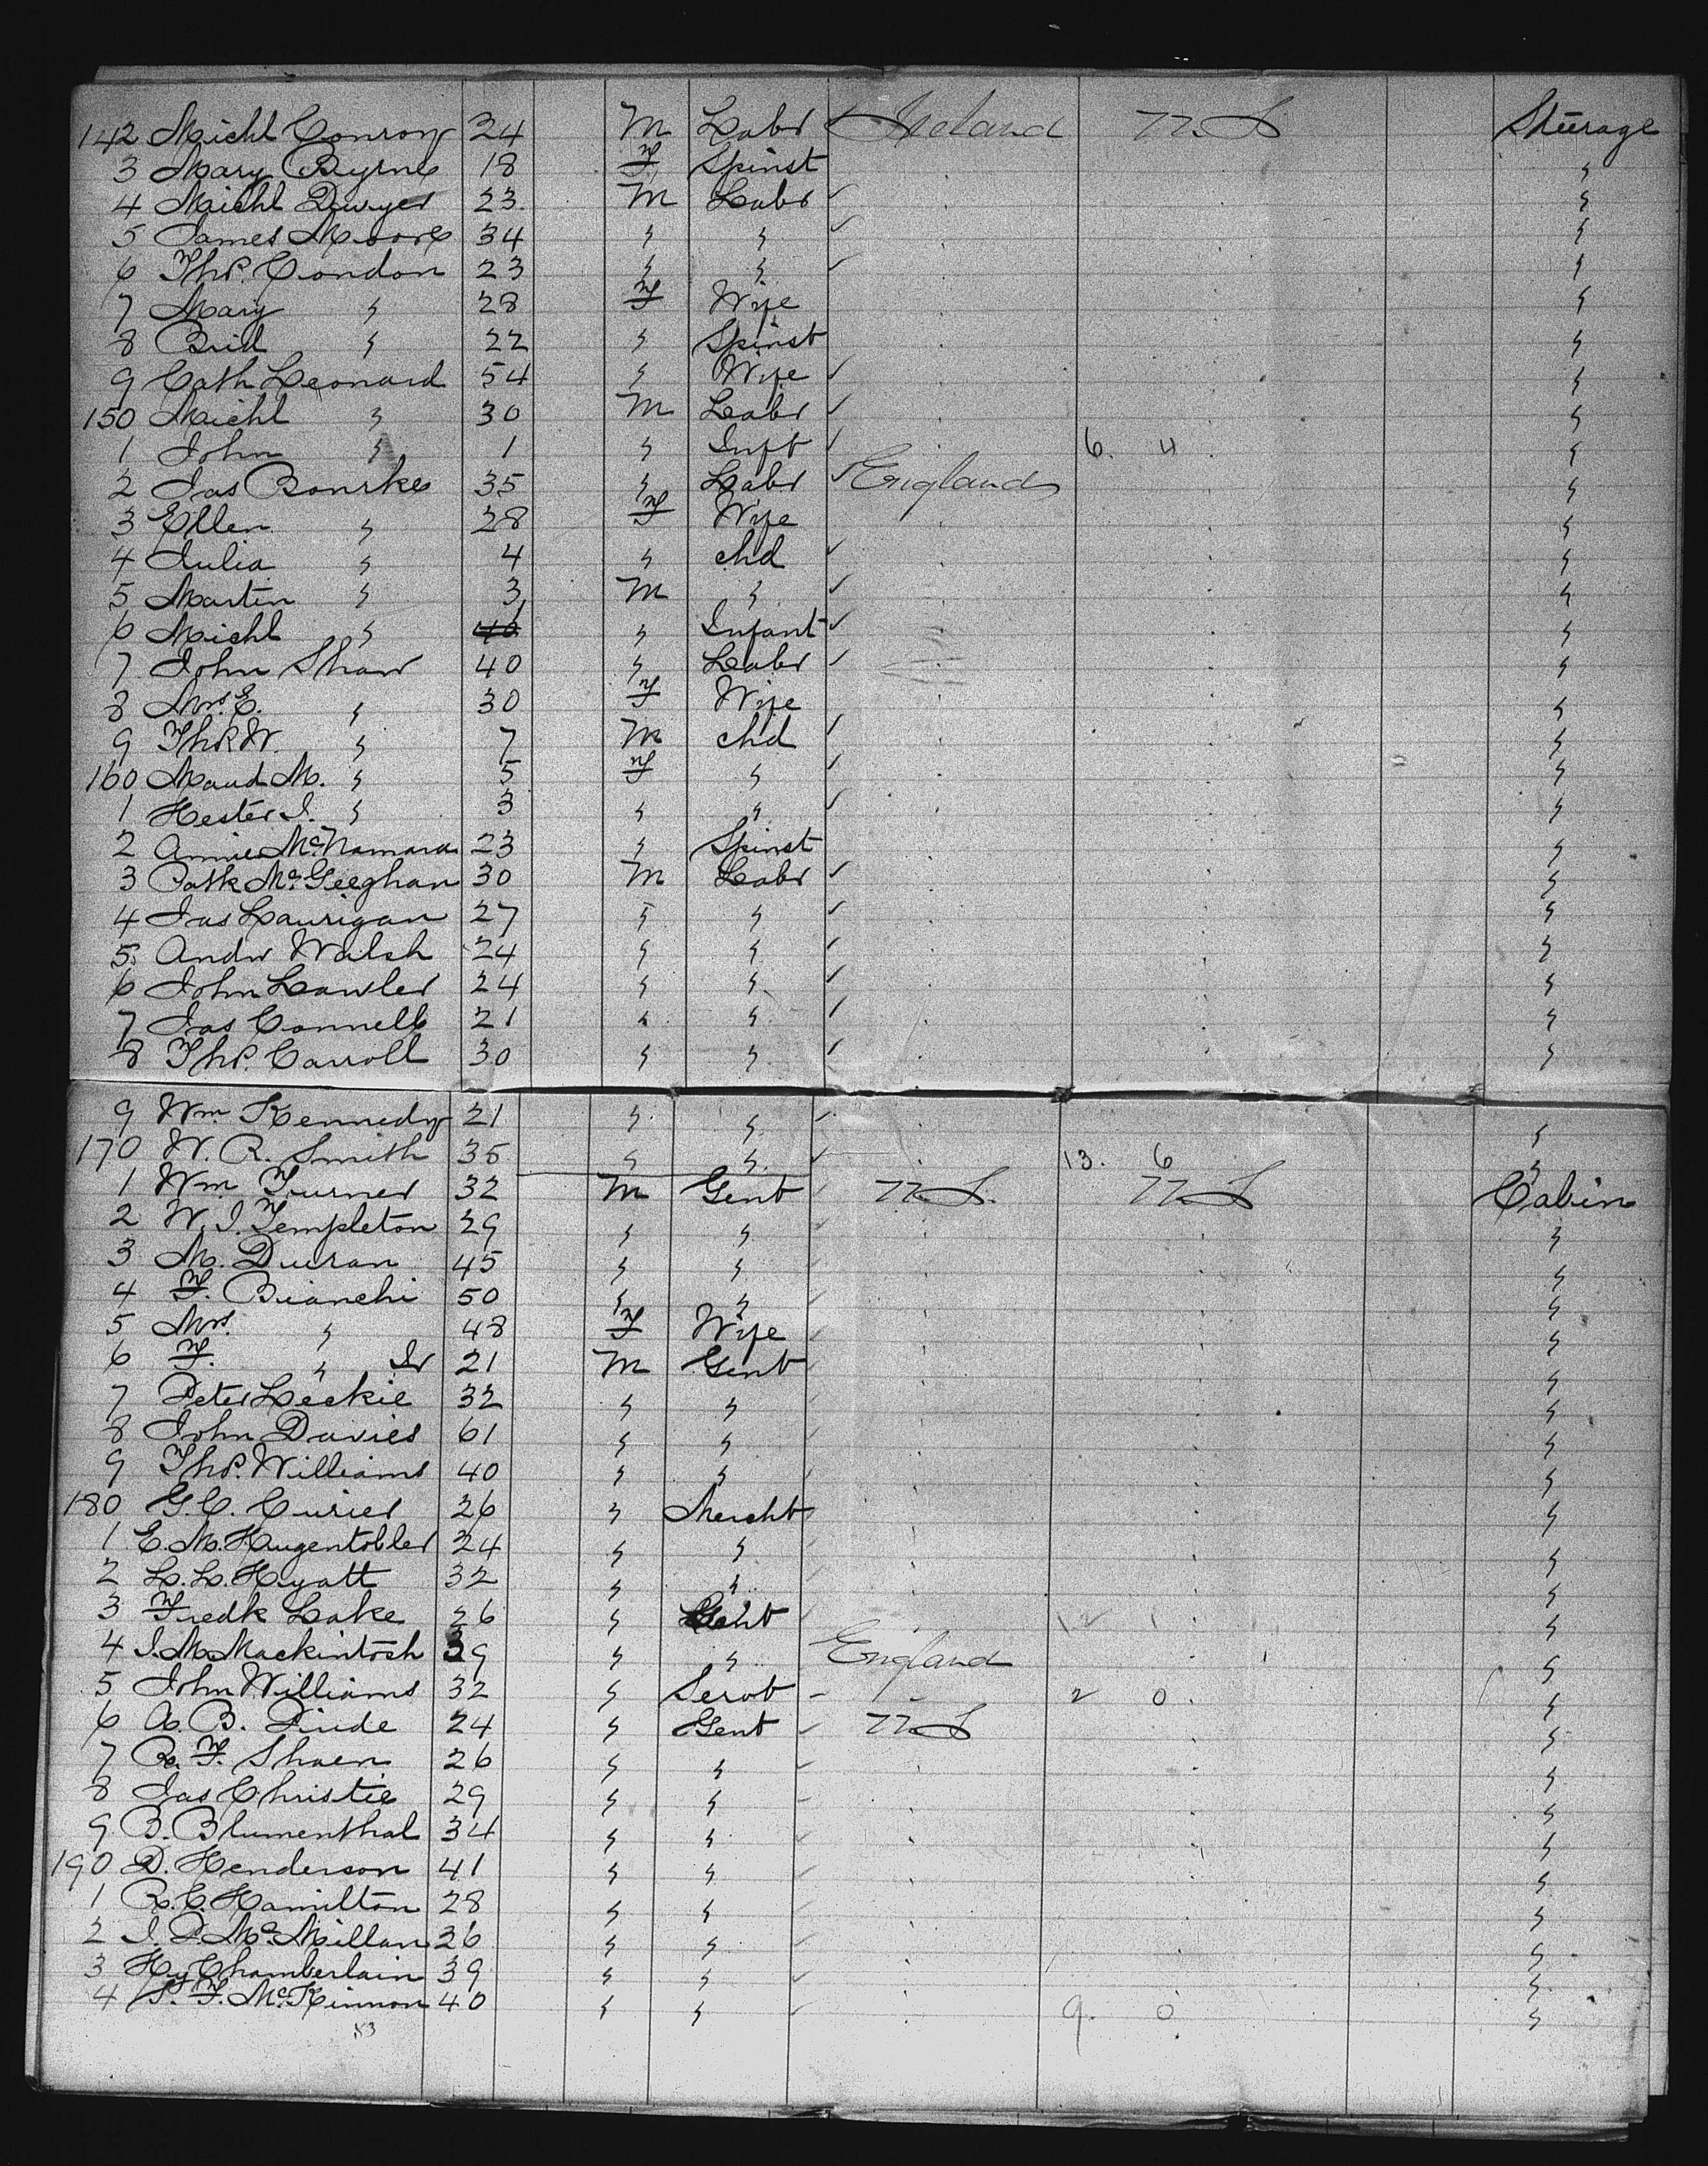 142 Michl Conroy 24 M Labr Ireland U.S Steerage
3 Mary Byrne 18 F Spinst "
4 Michl Dwyer 23 M Labr "
5 James Moore 34 " " "
6 Thos. Condon 23 " " "
7 Mary " 28 F Wife "
8 Brid " 22 " Spinst "
9 Cath Leonard 54 " Wife "
150 Michl " 30 M Labr "
1 John " 1 " Inft 6. 4 "
2 Jas Bourke 35 " Labr England "
3 Ellen " 28 F Wife "
4 Julia " 4 " chd "
5 Martin " 3 M " "
6 Michl " " Infant "
7 John Shaw 40 " Labr "
8 Mrs. E. " 30 F Wife "
9 Thos W. " 7 M chd "
160 Maud M. " 5 F " "
1 Hester J. " 3 " " "
2 Annie McNamara 23 " Spinst "
3 Patk McGeeghan 30 M Labr "
4 Jas Laurigan 27 " " "
5 Andw Walsh 24 " " "
6 John Lawler 24 " " "
7 Jas Connell 21 " " "
8 Thos. Carroll 30 " " "
9 Wm. Kennedy 21 " " "
170 W. R. Smith 35 " " 13. 6 "
1 Wm. Turner 32 M Gent U.S. U.S Cabin
2 W. J. Templeton 29 " " "
3 M. Duran 45 " " "
4 F. Bianchi 50 " " "
5 Mrs. " 48 F Wife "
6 F. " Jr 21 M Gent "
7 Peter Leckie 32 " " "
8 John Davies 61 " " "
9 Thos. Williams 40 " " "
180 G. C. Curier 26 " Mercht "
1 E. M. Hugentobler 24 " " "
2 L. L. Hyatt 32 " " "
3 Fredk Lake 26 " Gent 12 1 "
4 J. M. Mackintosh 39 " " England "
5 John Williams 32 " Servt 2 0 "
6 A. B. Pirde 24 " Gent U.S "
7 R. F. Shaen 26 " " "
8 Jas Christie 29 " " "
9 B. Blumenthal 34 " " "
190 D. Henderson 41 " " "
1 R. C. Hamilton 28 " " "
2 J. P. McMillan 26 " " "
3 Hy Chamberlain 39 " " "
4 F. McKinnon 40 " " 9. 0 "